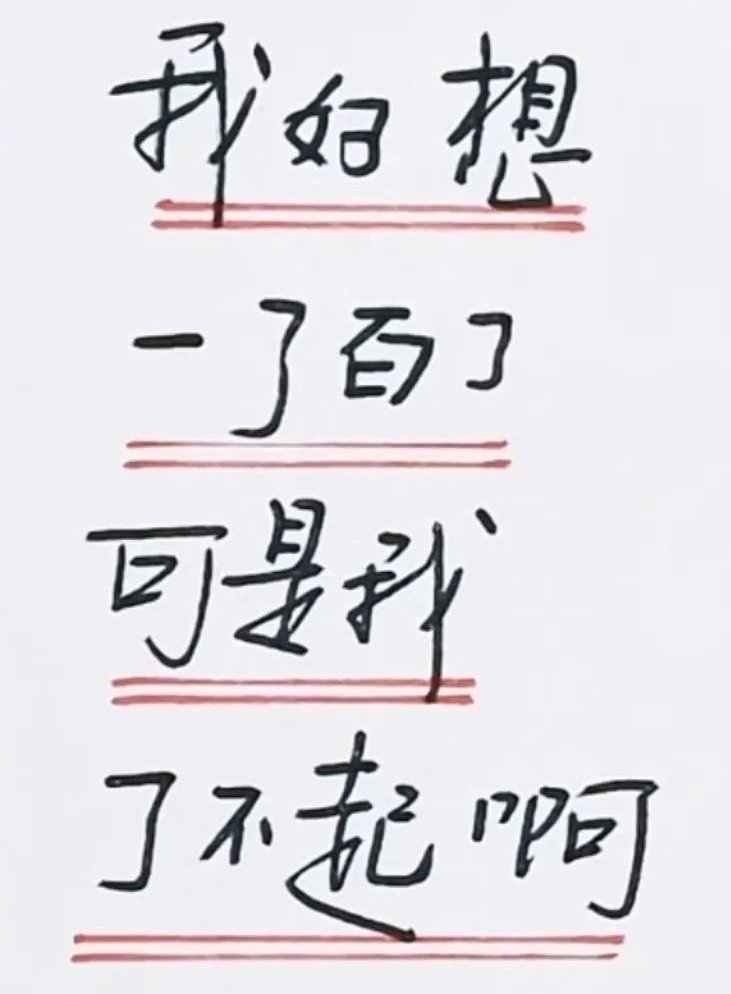 我好想
一了百了
可是我
了不起啊